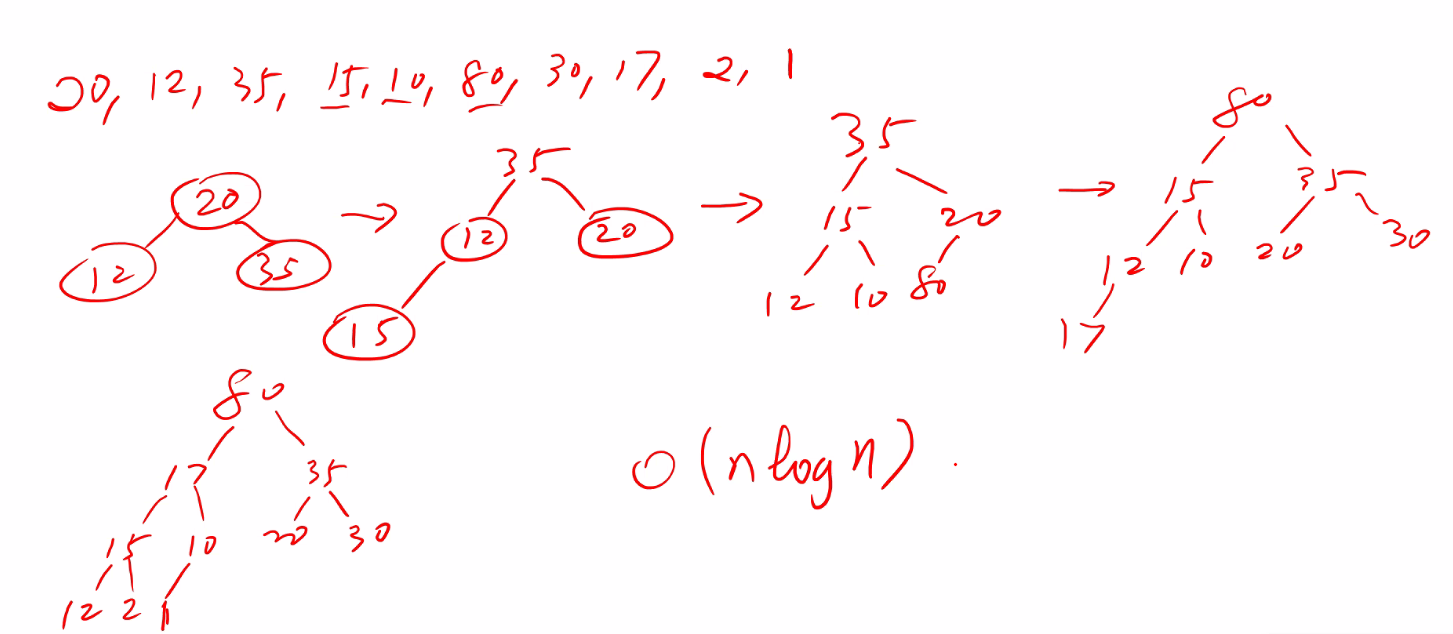 20, 12, 35, 15, 10, 80, 30, 17, 2, 1
20
12 35
35
12 20
15
35
15 20
12 10 80
80
15 35
12 10 20 30
17
80
17 35
15 10 20 30
12 2 1
O(n log n).